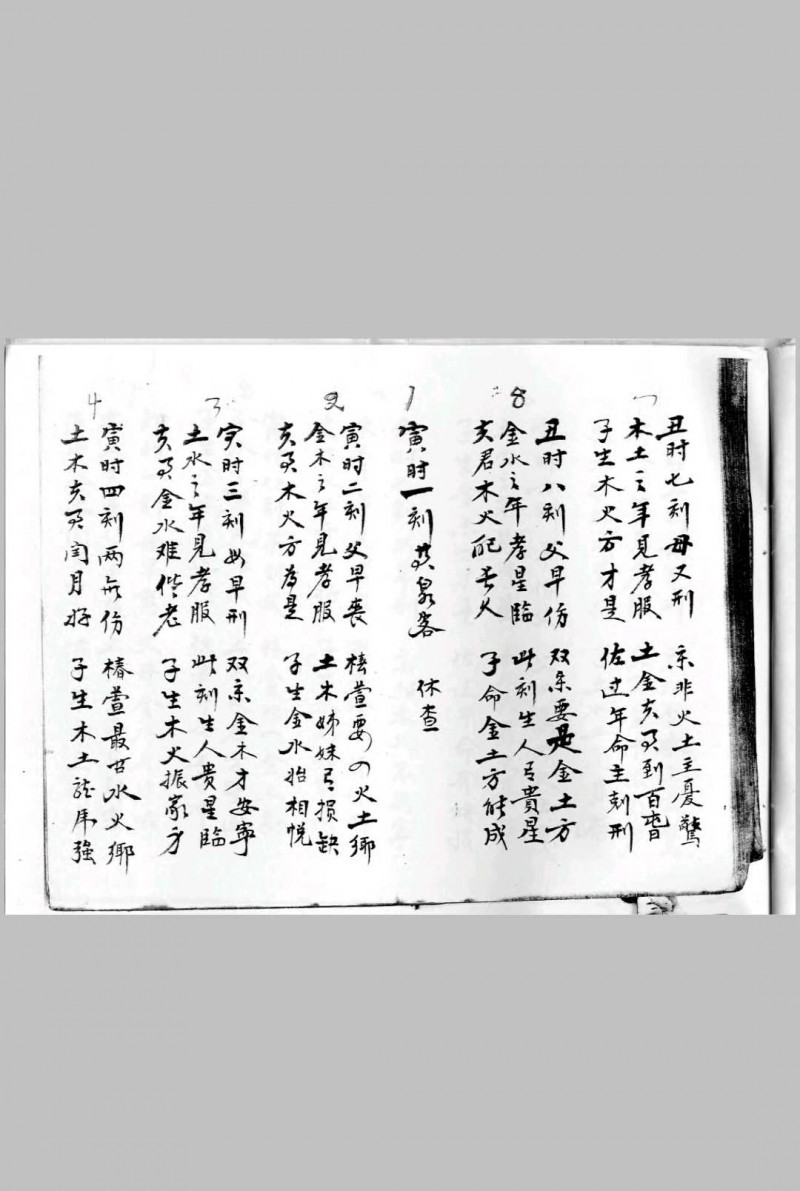 7
丑时七刻母又刑 亲非火土主憂驚
木土之年見孝服 土金夫妻到百
子生木火方才是 佐过年命主刻刑
8
丑时八刻父早伤 双亲要是金土方
金水之年孝星臨 此刻生人有貴星
夫君木火配 子命金土方能成
1
寅时一刻黄泉客 休查
2
寅时二刻父早丧 椿萱要 火土鄉
金木之年見孝服 土木姊妹有损缺
夫妻木火方为是 子生金水始相悦
3
寅时三刻母早刑 双亲金木才安寧
土水之年見孝服 此刻生人貴星臨
夫妻金水难偕老 子生木火振家
4
寅时四刻两無伤 椿萱最 水火鄉
土木夫妻 月好 子生木土 强